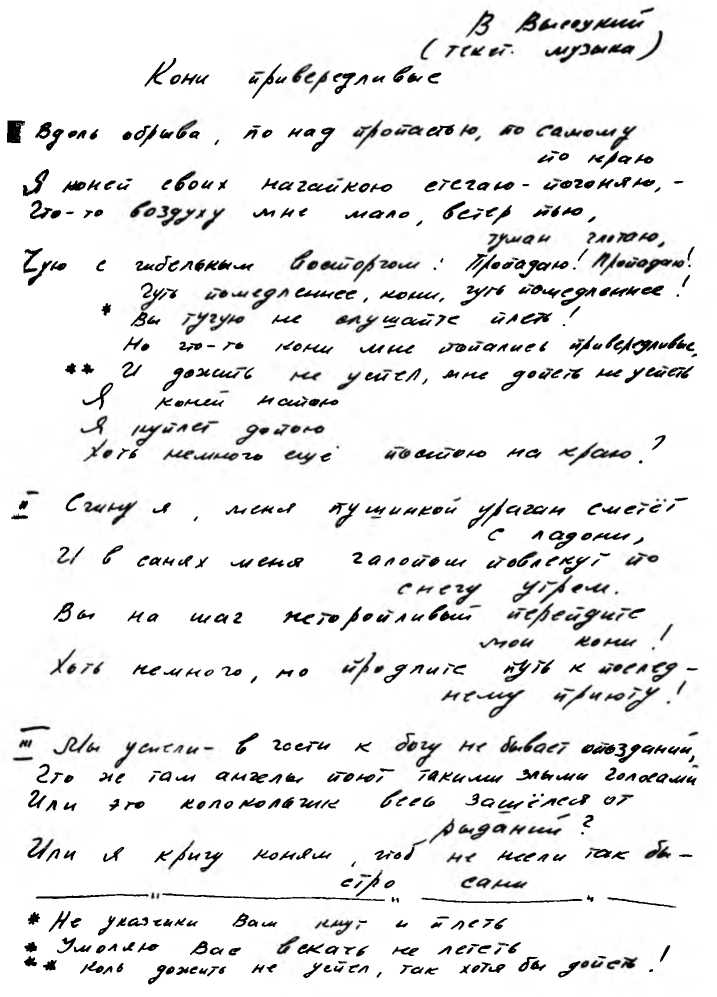 В Высоцкий
(текст. музыка)
Кони привередливые
I Вдоль обрыва, по над пропастью, по самому
по краю
Я коней своих нагайкою стегаю-погоняю, -
Что-то воздуху мне мало, ветер пью,
туман глотаю,
Чую с гибельным восторгом: Пропадаю! Пропадаю!
Чуть помедленнее, кони, чуть помедленнее!
* Вы тугую не слушайте плеть!
Но что-то кони мне попались привередливые,
** И дожить не успел, мне допеть не успеть
Я коней напою
Я куплет допою
Хоть немного ещё постою на краю?
II Сгину я, меня пушинкой ураган сметёт
с ладони,
И в санях меня галопом повлекут по
снегу утром.
Вы на шаг неторопливый перейдите
мои кони!
Хоть немного, но продлите путь к послед-
нему приюту!
III Мы успели - в гости к богу не бывает опозданий,
Что же там ангелы поют такими злыми голосами
Или это колокольчик весь зашёлся от
рыданий?
Или я кричу коням, чтоб не несли так бы-
стро сани
—"— " — " —
* Не указчики Вам кнут и плеть
* Умоляю Вас вскачь не лететь
** Коль дожить не успел, так хотя бы допеть!